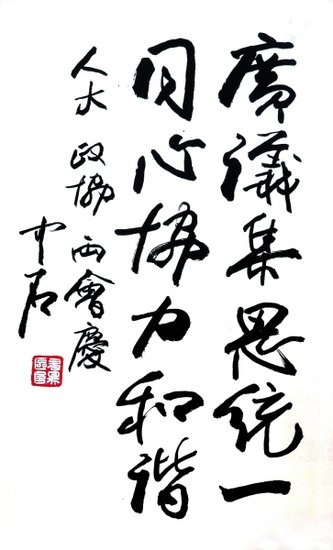 廣議集思統一
同心協力和諧
人大 政協 兩會慶
中石